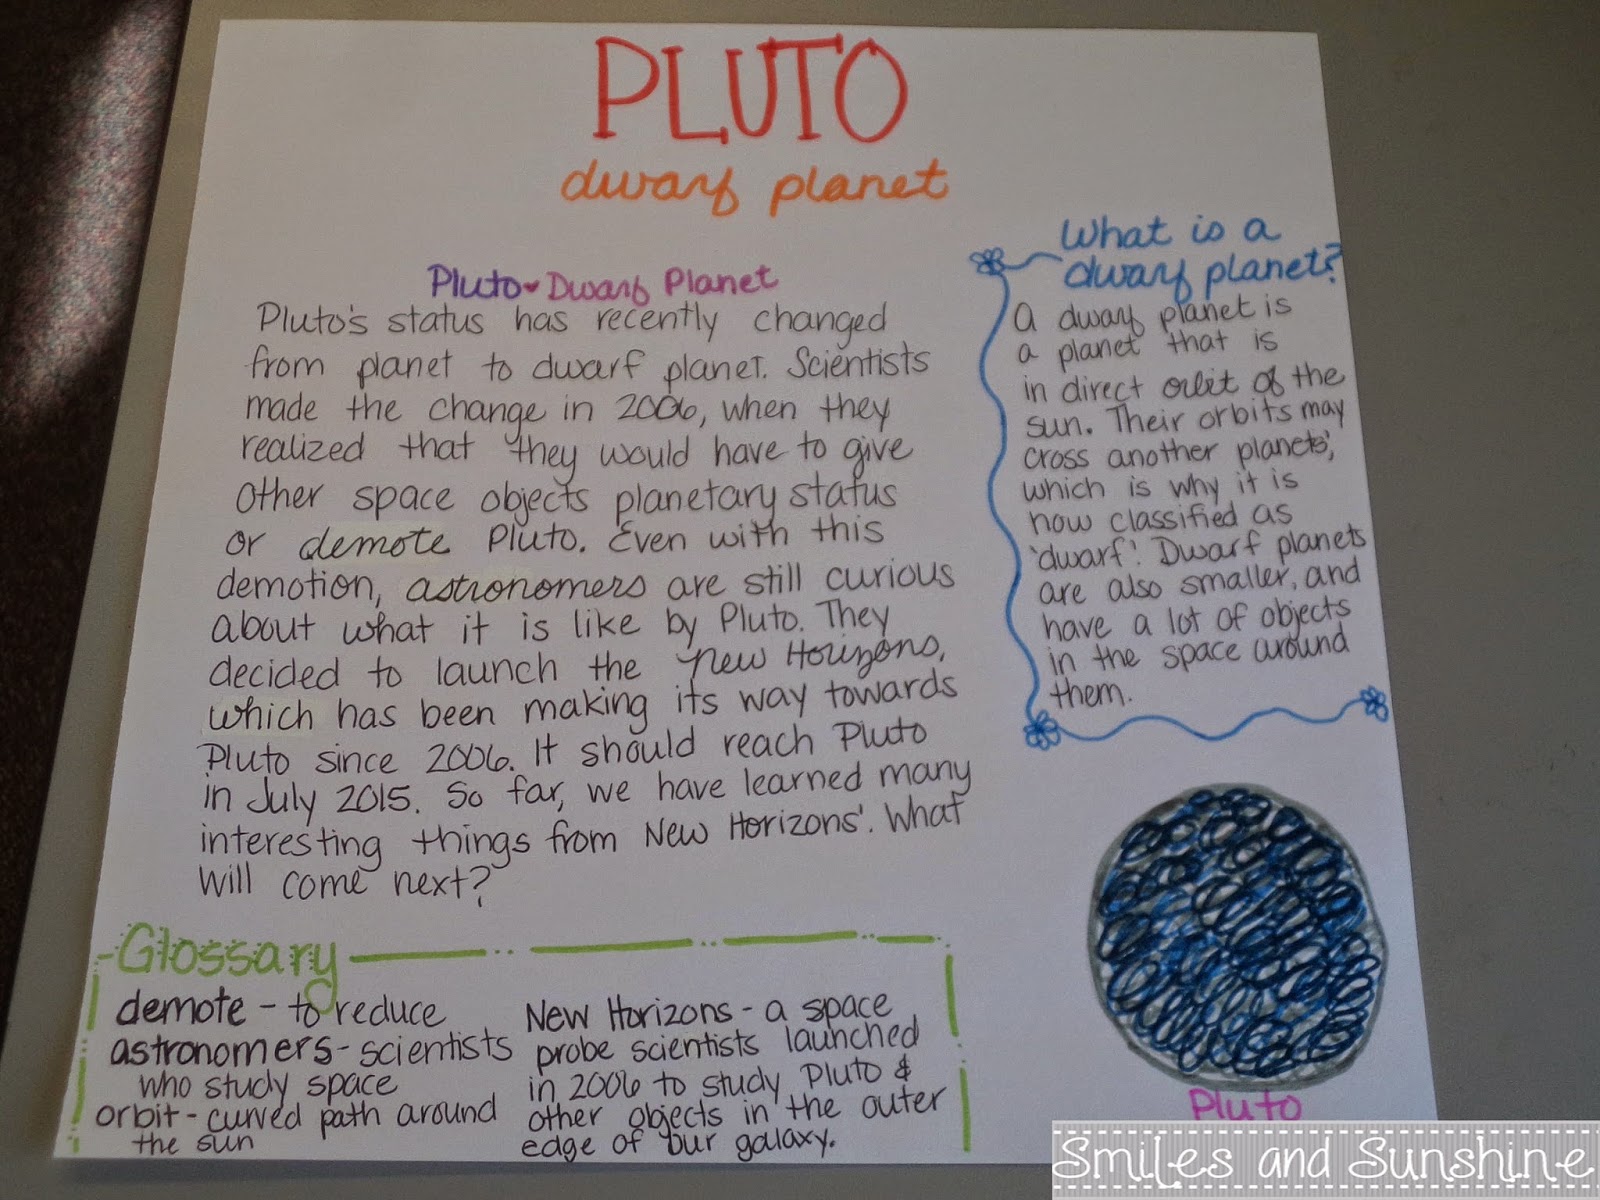 PLUTO
dwarf planet
Pluto Dwarf Planet
Pluto's status has recently changed
from planet to dwarf planet. Scientists
made the change in 2006, when they
realized that they would have to give
other space objects planetary status
or demote Pluto. Even with this
demotion, astronomers are still curious
about what it is like by Pluto. They
decided to launch the New Horizons,
which has been making its way towards
Pluto since 2006. It should reach Pluto
in July 2015. So far, we have learned many
interesting things from New Horizons'. What
will come next?
What is a
dwarf planet?
A dwarf planet is
a planet that is
in direct orbit of the
sun. Their orbits may
cross another planets',
which is why it is
now classified as
'dwarf'. Dwarf planets
are also smaller, and
have a lot of objects
in the space around
them.
Pluto
Glossary
demote - to reduce
astronomers - scientists
who study space
orbit - curved path around
the sun
New Horizons - a space
probe scientists launched
in 2006 to study Pluto &
other objects in the outer
edge of our galaxy.
Smiles and Sunshine